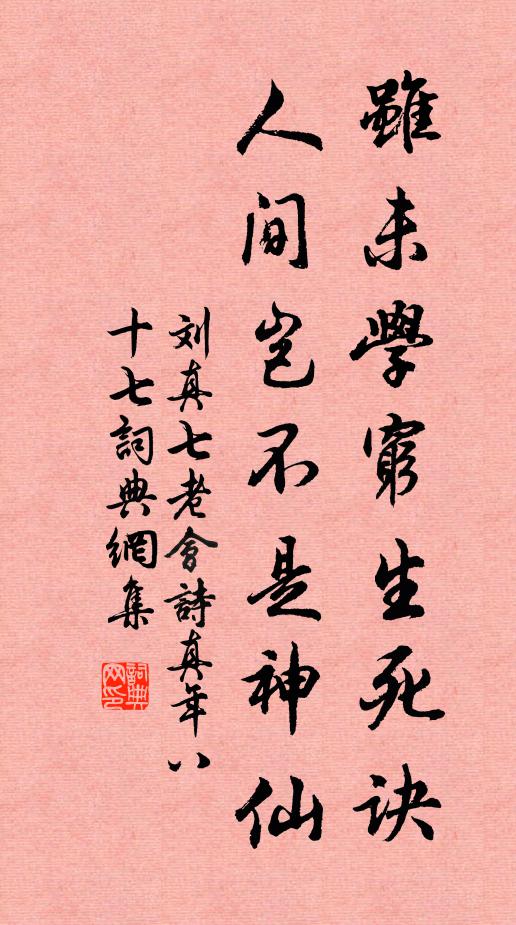 雖未學窮生死訣
人間岂不是神仙
刘真七老會詩真年八
十七詞典網集
詞典
网印